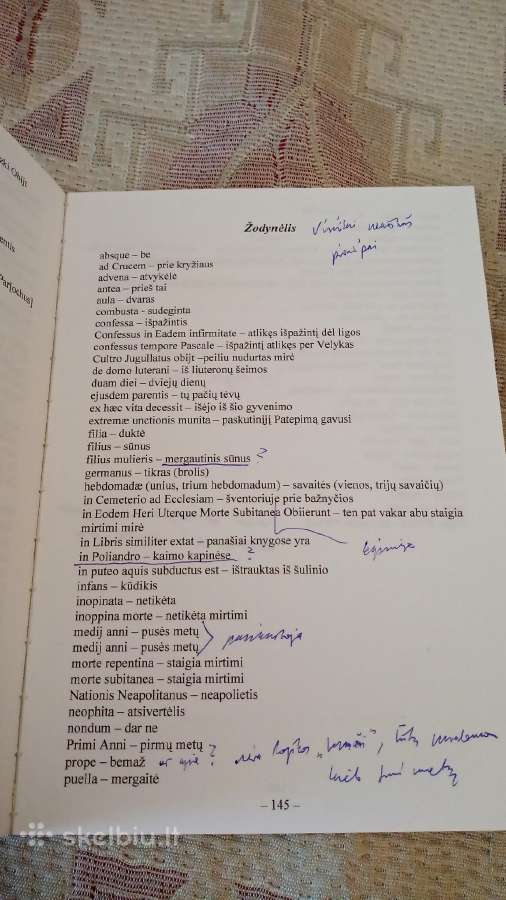 Žodynėlis
absque – be
ad Crucem – prie kryžiaus
advena – atvykėlė
antea – prieš tai
aula – dvaras
combusta - sudeginta
confessa – išpažintis
Confessus in Eadem infirmitate – atlikęs išpažintį dėl ligos
confessus tempore Pascale – išpažintį atlikęs per Velykas
Cultro Jugullatus obijt –peiliu nudurtas mirė
de domo luterani – iš liuteronų šeimos
duam diei – dviejų dienų
ejusdem parentis – tų pačių tėvų
ex hæc vita decessit – išėjo iš šio gyvenimo
extremæ unctionis munita – paskutinįjį Patepimą gavusi
filia – duktė
filius – sūnus
filius mulieris – mergautinis sūnus ?
germanus – tikras (brolis)
hebdomadæ (unius, trium hebdomadum) – savaitės (vienos, trijų savaičių)
in Cemeterio ad Ecclesiam – šventoriuje prie bažnyčios
in Eodem Heri Uterque Morte Subitanea Obiierunt – ten pat vakar abu staigia
mirtimi mirė
in Libris similiter extat – panašiai knygose yra
in Poliandro – kaimo kapinėse ?
in puteo aquis subductus est – ištrauktas iš šulinio
infans – kūdikis
inopinata – netikėta
inoppina morte – netikėta mirtimi
medij anni – pusės metų
medij anni – pusės metų
morte repentina – staigia mirtimi
morte subitanea – staigia mirtimi
Nationis Neapolitanus – neapolietis
neophita – atsivertėlis
nondum – dar ne
Primi Anni – pirmų metų
prope – bemaž
puella – mergaitė
– 145 –
skelbiu.lt